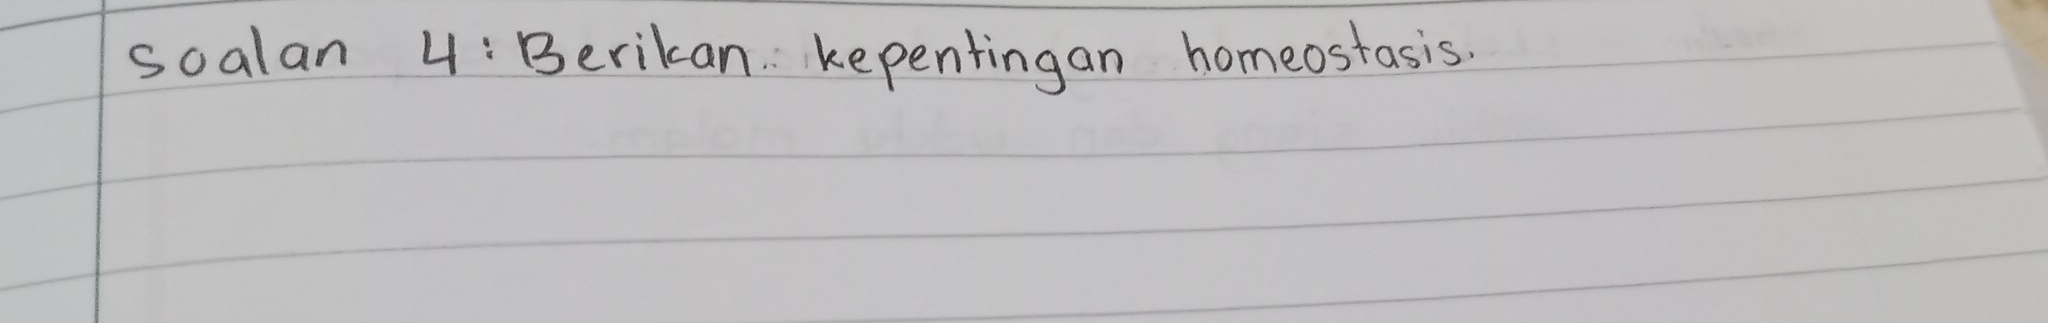 Soalan 4: Berikan kepentingan homeostasis.